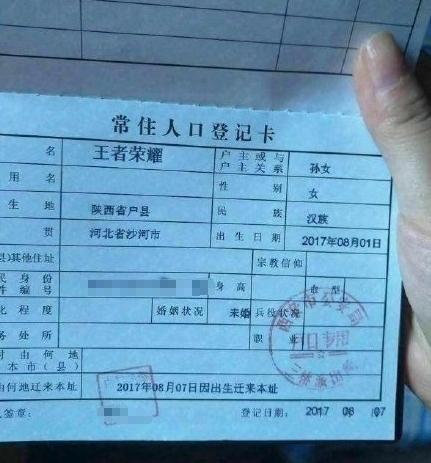 常住人口登记卡
名 王者荣耀 户主或与户主关系 孙女
用名 性别 女
生地 陕西省户县 民族 汉族
贯 河北省沙河市 出生日期 2017年08月01日
县)其他住址 宗教信仰
民身份
件编号 身高 血型
化程度 婚姻状况 未婚 兵役状况
务处所 职业
时由何地
本市(县)
何地迁来本址 2017年08月07日因出生迁来本址
人签章: 登记日期: 2017 08 07
户口专用